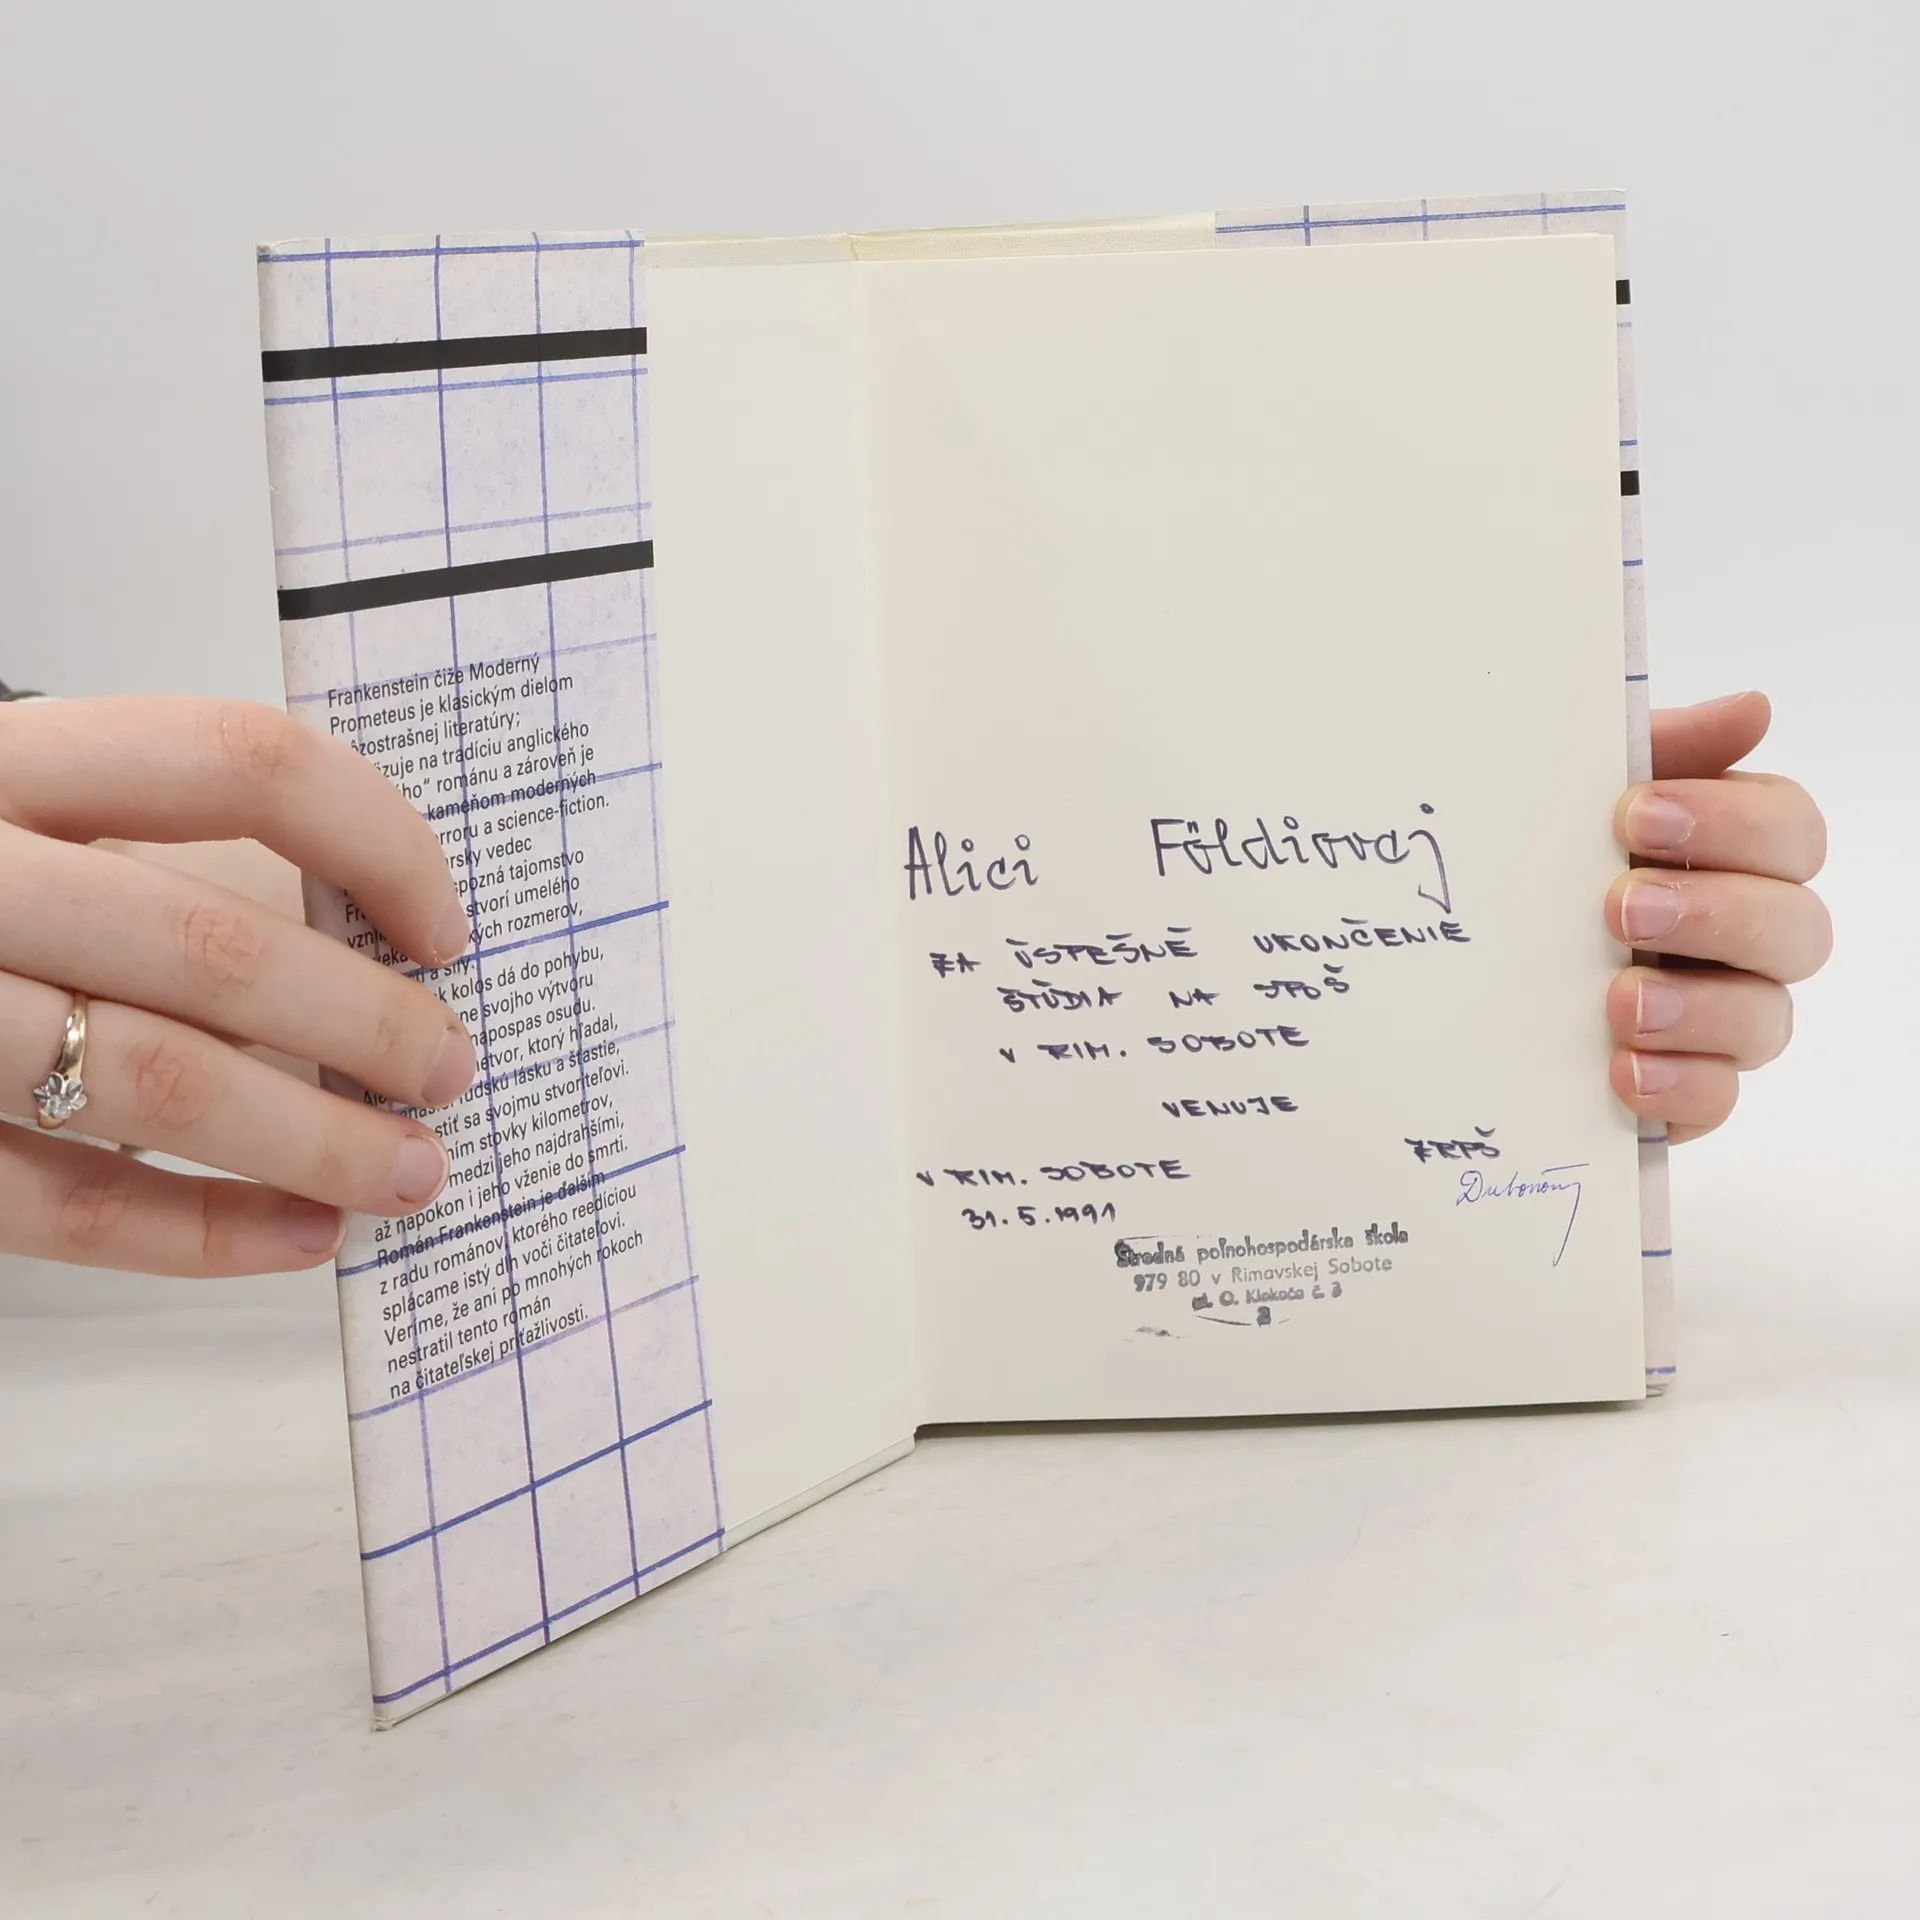 Frankenstein čiže Moderný
Prometeus je klasickým dielom
ôzostrašnej literatúry;
zuje na tradíciu anglického
ho“ románu a zároveň je
kameňom moderných
rroru a science-fiction.
rsky vedec
spozná tajomstvo
Fr stvorí umelého
vzni kých rozmerov,
veka
ti a sily.
k kolos dá do pohybu,
ne svojho výtvoru
napospas osudu.
netvor, ktorý hľadal,
Ale ľudskú lásku a šťastie,
stiť sa svojmu stvoriteľovi.
ním stovky kilometrov,
medzi jeho najdrahšími,
až napokon i jeho vženie do smrti.
Román Frankenstein je ďalším
z radu románov, ktorého reedíciou
splácame istý dlh voči čitateľovi.
Veríme, že ani po mnohých rokoch
nestratil tento román
na čitateľskej príťažlivosti.
Alici Földiovej
ZA ÚSPEŠNÉ UKONČENIE
ŠTÚDIA NA SPOŠ
V RIM. SOBOTE
VENUJE
ZRPŠ
V RIM. SOBOTE
31.5.1991
Stredná poľnohospodárska škola
979 80 v Rimavskej Sobote
ul. O. Klokoča č. 3
2